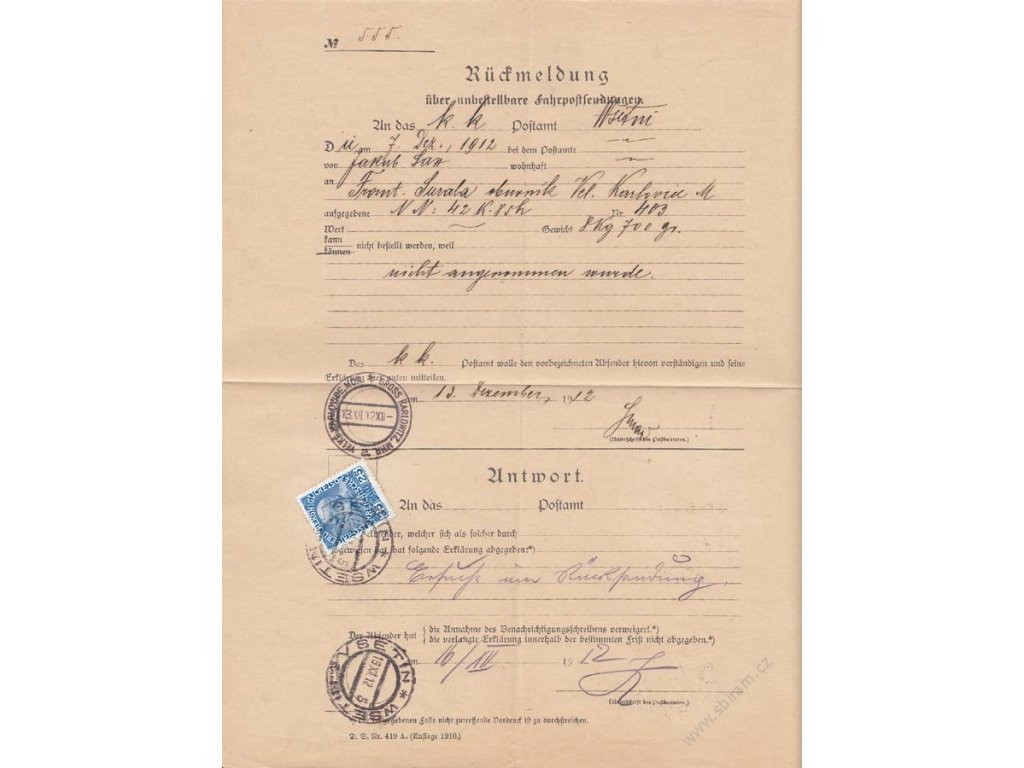 № 555.
Rückmeldung
über unbestellbare Fahrpostsendungen.
An das k. k Postamt Wsetin
D ii am 7. Dez., 1912 bei dem Postamte
von Jakub wohnhaft
an Frant. Surala Vel. Karlovic M
aufgegebene NN: 42 K. 85h Nr. 403
Wert Gewicht 8 Kg 700 gr.
kann
können nicht bestellt werden, weil
nicht angenommen wurde.
Das k k. Postamt wolle den vorbezeichneten Absender hievon verständigen und seine
Erklärung hier unten mitteilen.
GROSS KARLOWITZ, MHR.
13.XII.12XII-
am 13. Dezember, 1912
(Unterschrift des Postbeamten.)
Antwort.
An das Postamt
Absender, welcher sich als solcher durch
ausgewiesen hat, hat folgende Erklärung abgegeben:*)
25 25
WSETIN
Ersuche um Rücksendung.
Der Absender hat { die Annahme des Benachrichtigungsschreibens verweigert.*)
{ die verlangte Erklärung innerhalb der bestimmten Frist nicht abgegeben.*)
VSETIN * WSETIN
16.XII.12 5
am 16/XII 1912
(Unterschrift des Postbeamten.)
*) Im gegebenen Falle nicht zutreffende Vordruck ist zu durchstreichen.
D. S. Nr. 419 A. (Auflage 1910.)
www.sbiram.cz